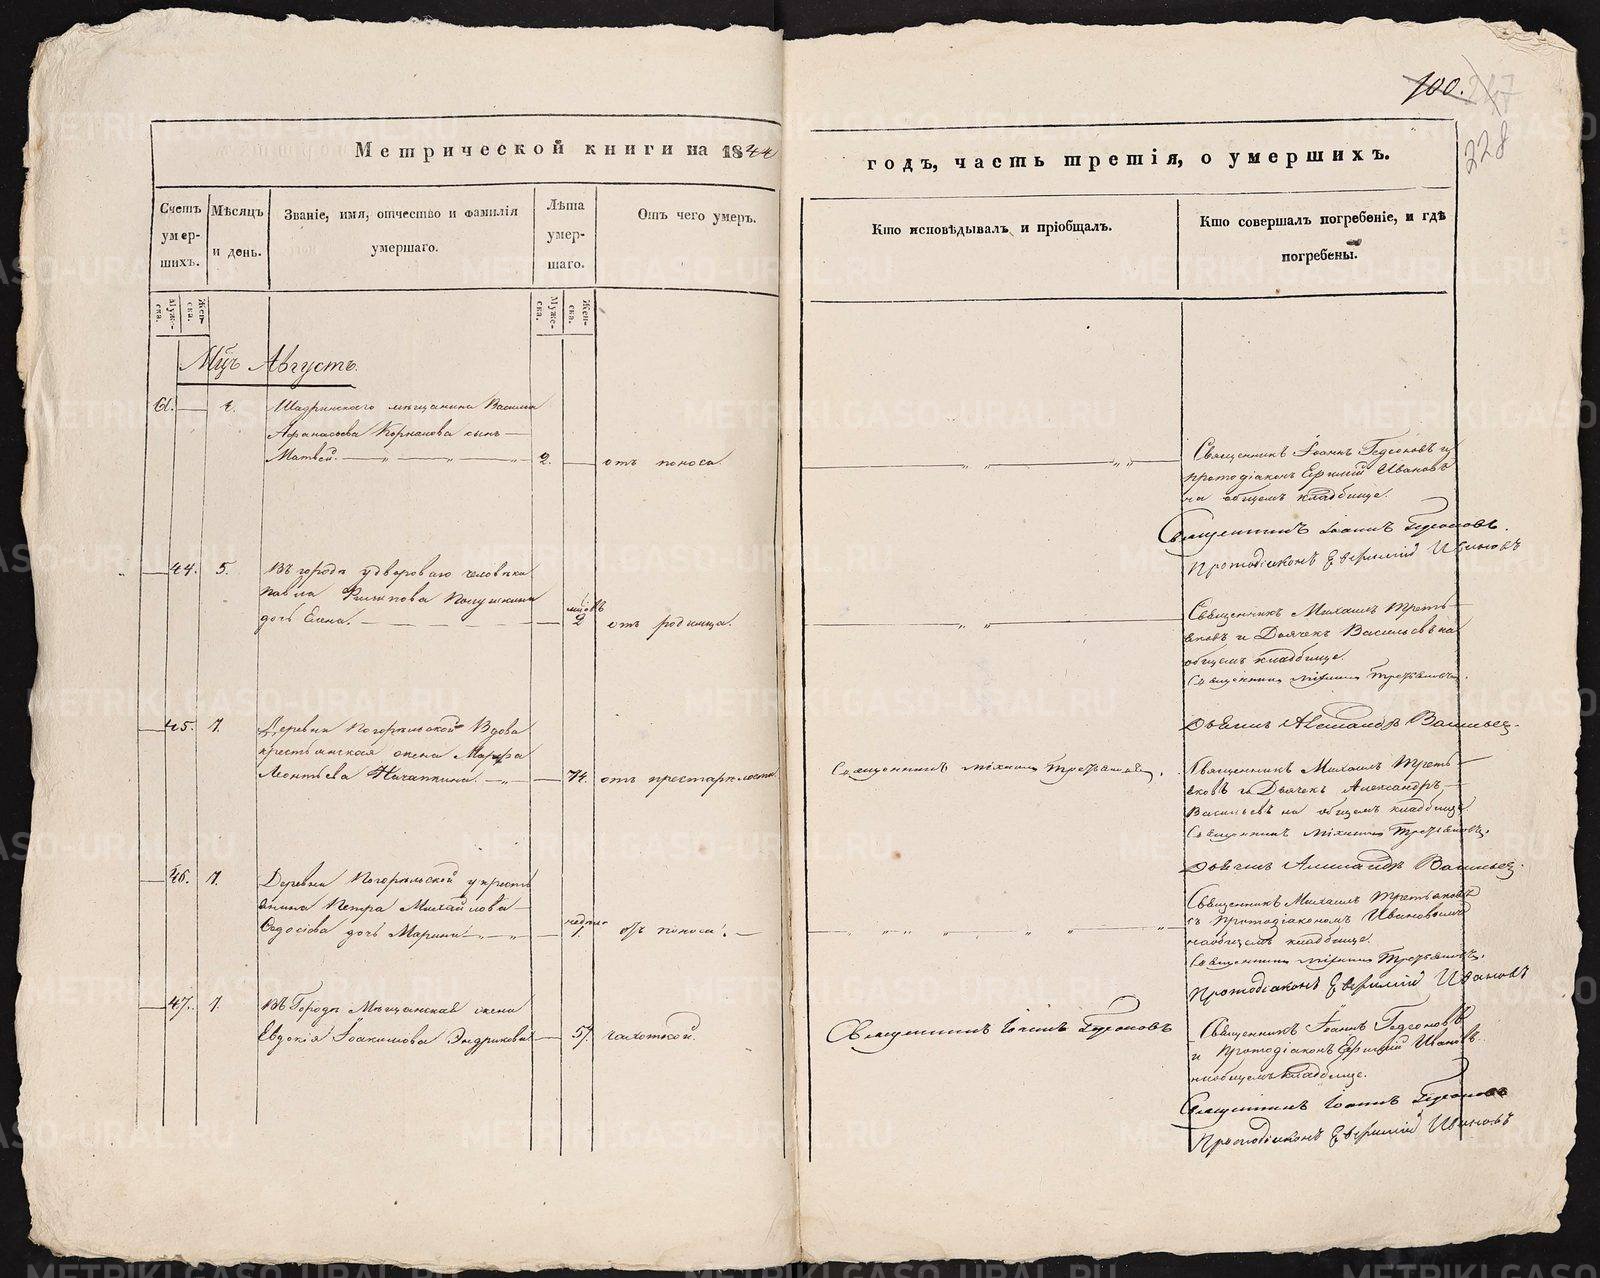 100. 217
228
Метрической книги на 1844
годъ, часть третія, о умершихъ.
Счетъ умер-шихъ.
Мѣсяцъ и день.
Званіе, имя, отчество и фамилія умершаго.
Лѣта умер-шаго.
Отъ чего умеръ.
Кто исповѣдывалъ и пріобщалъ.
Кто совершалъ погребеніе, и гдѣ погребены.
Муже-ска.
Жен-ска.
Муже-ска.
Жен-ска.
Мцъ Августъ.
Шадринскаго мѣщанина Василья
Афанасьева сынъ
Матвей. 2. отъ поноса.
Священникъ Іоаннъ Гедеоновъ и
протодіаконъ Ефимій Ивановъ
на общемъ кладбище.
Священникъ Іоаннъ Гедеоновъ.
Протодіаконъ Ивановъ
44. 5. Въ городѣ у двороваго человѣка
Павла Филипова
дочь Елена. 2 отъ родимца.
Священникъ Михаилъ Треть-
яковъ и Дьячекъ Васильевъ на
общемъ кладбище.
Священникъ Михаилъ Третьяковъ.
Дьячекъ Александръ Васильевъ.
45. 7. Деревни Погорѣльской Вдова
крестьянская жена Марфа
Леонтьева 74. отъ престарѣлости
Священникъ Михаилъ Третьяковъ.
Священникъ Михаилъ Треть-
яковъ и Дьячекъ Александръ
Васильевъ на общемъ кладбище
Священникъ Михаилъ Третьяковъ.
Дьячекъ Александръ Васильевъ.
46. 7. Деревни Погорѣльской у кресть
янина Петра Михайлова
Федосѣева дочь Марина. 1. отъ поноса.
Священникъ Михаилъ Третьяковъ
съ Протодіакономъ Ивановымъ
на общемъ кладбище.
Священникъ Михаилъ Третьяковъ.
Протодіаконъ Ивановъ
47. 7. Въ Городѣ Мѣщанская жена
Евдокія Іоакимова 57. чахоткой.
Священникъ Іоаннъ Гедеоновъ
Священникъ Іоаннъ Гедеоновъ
и Протодіаконъ Ефимій Ивановъ
на общемъ кладбище.
Священникъ Іоаннъ Гедеоновъ
Протодіаконъ Ивановъ
METRIKI.GASO-URAL.RU